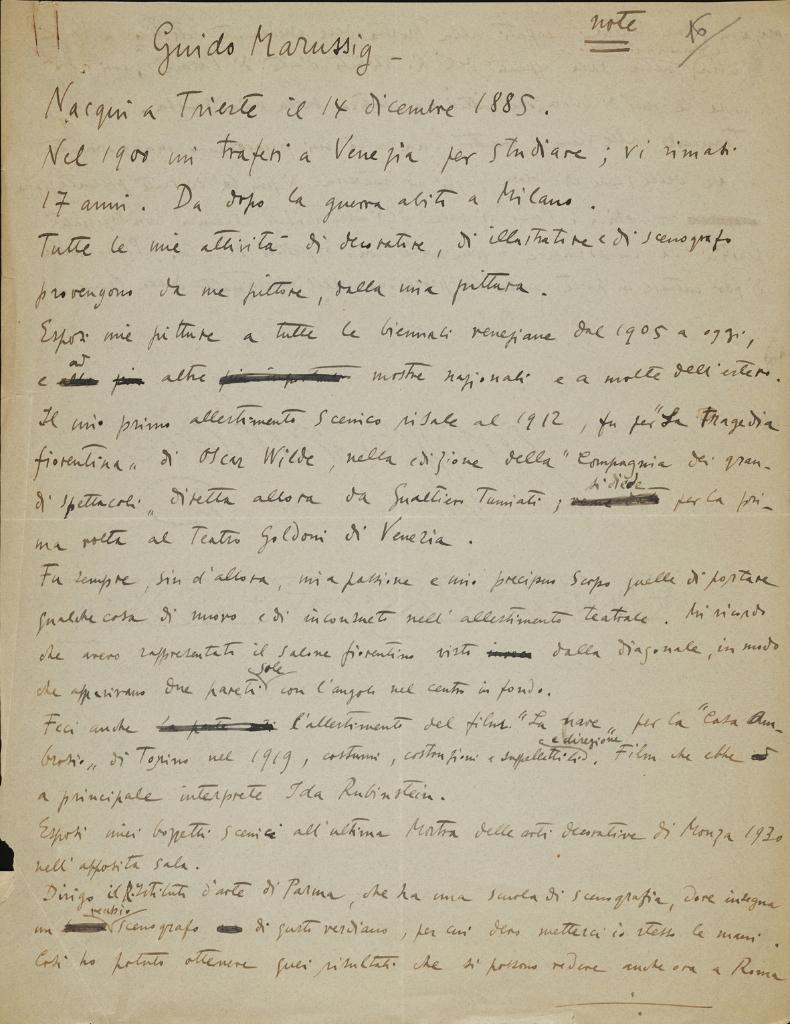 note
Guido Marussig -
Nacqui a Trieste il 14 dicembre 1885.
Nel 1900 mi trasferi a Venezia per studiare; vi rimasi
17 anni. Da dopo la guerra abito a Milano.
Tutte le mie attività di decoratore, di illustratore e di scenografo
provengono da me pittore, dalla mia pittura.
Esposi mie pitture a tutte le biennali veneziane dal 1905 a oggi,
e ad altre mostre nazionali e a molte dell'estero.
Il mio primo allestimento scenico risale al 1912, fu per "La Tragedia
fiorentina" di Oscar Wilde, nella edizione della "Compagnia dei gran-
di spettacoli" diretta allora da Gualtiero Tumiati; si diede per la pri-
ma volta al Teatro Goldoni di Venezia.
Fu sempre, sin d'allora, mia passione e mio precipuo scopo quello di portare
qualche cosa di nuovo e di inconsueto nell'allestimento teatrale. Mi ricordo
che avevo rappresentato il salone fiorentino visto dalla diagonale, in modo
che apparivano due pareti sole con l'angolo nel centro in fondo.
Feci anche l'allestimento del film "La nave" per la "Casa Am-
brosio" di Torino nel 1919, costumi, costruzioni e suppellettili e direzione. Film che ebbe
a principale interprete Ida Rubinstein.
Esposi miei bozzetti scenici all'ultima Mostra delle arti decorative di Monza 1930
nell'apposita sala.
Dirigo il R. Istituto d'arte di Parma, che ha una scuola di scenografia, dove insegna
un vecchio scenografo di gusto verdiano, per cui devo metterci io stesso le mani.
Così ho potuto ottenere quei risultati che si possono vedere anche ora a Roma